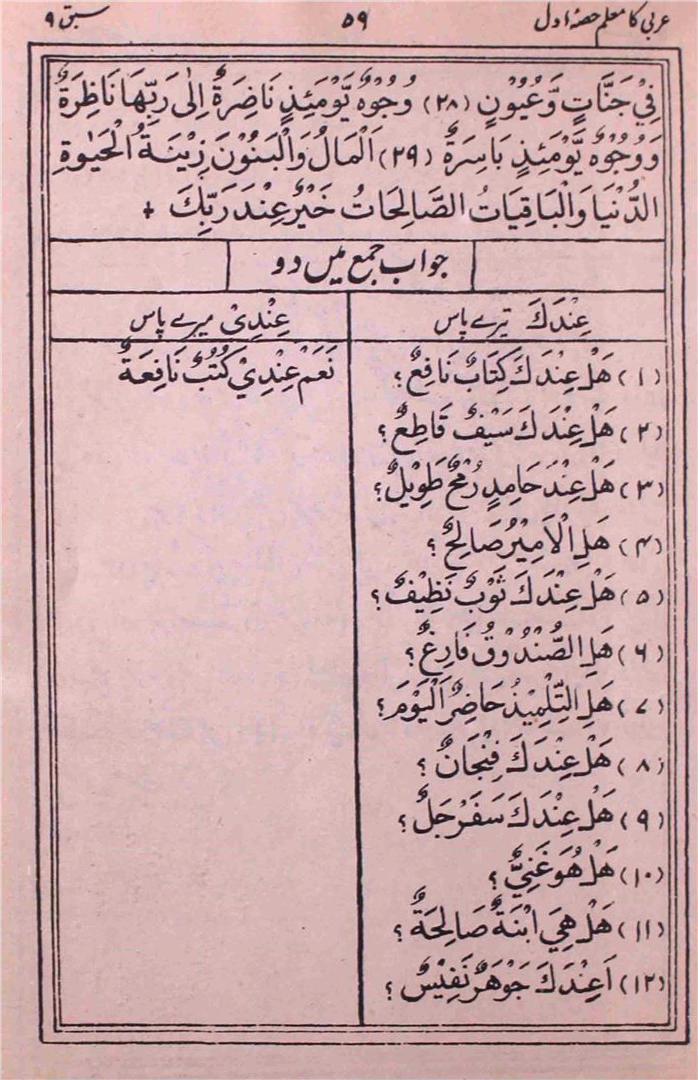 عربی کا معلم حصۂ اول ۵۹ سبق ۹
فِيْ جَنَّاتٍ وَّعُيُوْنٍ (۲۸) وُجُوْهٌ يَّوْمَئِذٍ نَاضِرَةٌ اِلٰى رَبِّهَا نَاظِرَةٌ
وَوُجُوْهٌ يَّوْمَئِذٍ بَاسِرَةٌ (۲۹) اَلْمَالُ وَالْبَنُوْنَ زِيْنَةُ الْحَيٰوةِ
الدُّنْيَا وَالْبَاقِيَاتُ الصَّالِحَاتُ خَيْرٌ عِنْدَ رَبِّكَ +
جواب جمع میں دو
عِنْدَكَ تیرے پاس
عِنْدِيْ میرے پاس
(۱) هَلْ عِنْدَكَ كِتَابٌ نَافِعٌ؟
نَعَمْ عِنْدِيْ كُتُبٌ نَافِعَةٌ
(۲) هَلْ عِنْدَكَ سَيْفٌ قَاطِعٌ؟
(۳) هَلْ عِنْدَ حَامِدٍ رُمْحٌ طَوِيْلٌ؟
(۴) هَلِ الْاَمِيْرُ صَالِحٌ؟
(۵) هَلْ عِنْدَكَ ثَوْبٌ نَظِيْفٌ؟
(۶) هَلِ الصُّنْدُوْقُ فَارِغٌ؟
(۷) هَلِ التِّلْمِيْذُ حَاضِرٌ اَلْيَوْمَ؟
(۸) هَلْ عِنْدَكَ فِنْجَانٌ؟
(۹) هَلْ عِنْدَكَ سَفَرْجَلٌ؟
(۱۰) هَلْ هُوَ غَنِيٌّ؟
(۱۱) هَلْ هِيَ ابْنَةٌ صَالِحَةٌ؟
(۱۲) اَعِنْدَكَ جَوْهَرٌ نَفِيْسٌ؟